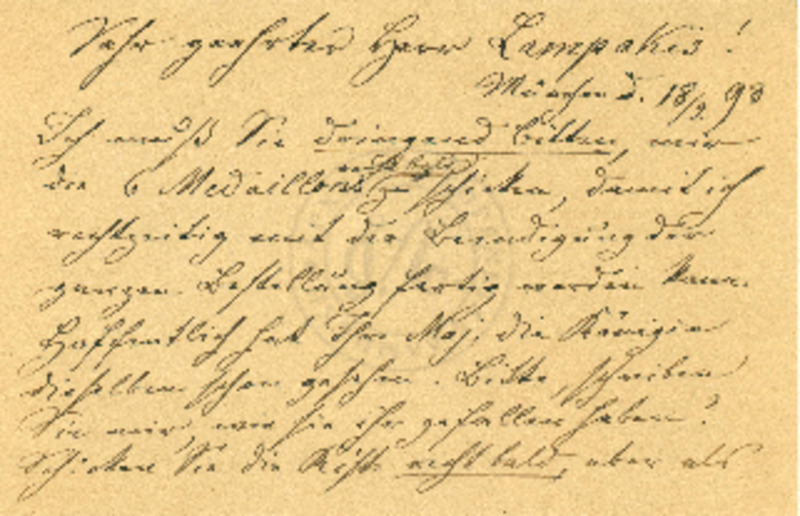 Sehr geehrter Herr Lampakis!
München d. 18/9. 98
Ich muß Sie dringend bitten, mir
recht bald
die 6 Medaillons zu schicken, damit ich
rechtzeitig mit der Beendigung der
ganzen Bestellung fertig werden kann.
Hoffentlich hat Ihre Maj. die Königin
dieselben schon gesehen. Bitte, schreiben
Sie mir, wie sie ihr gefallen haben?
Schicken Sie die Kiste recht bald, aber als